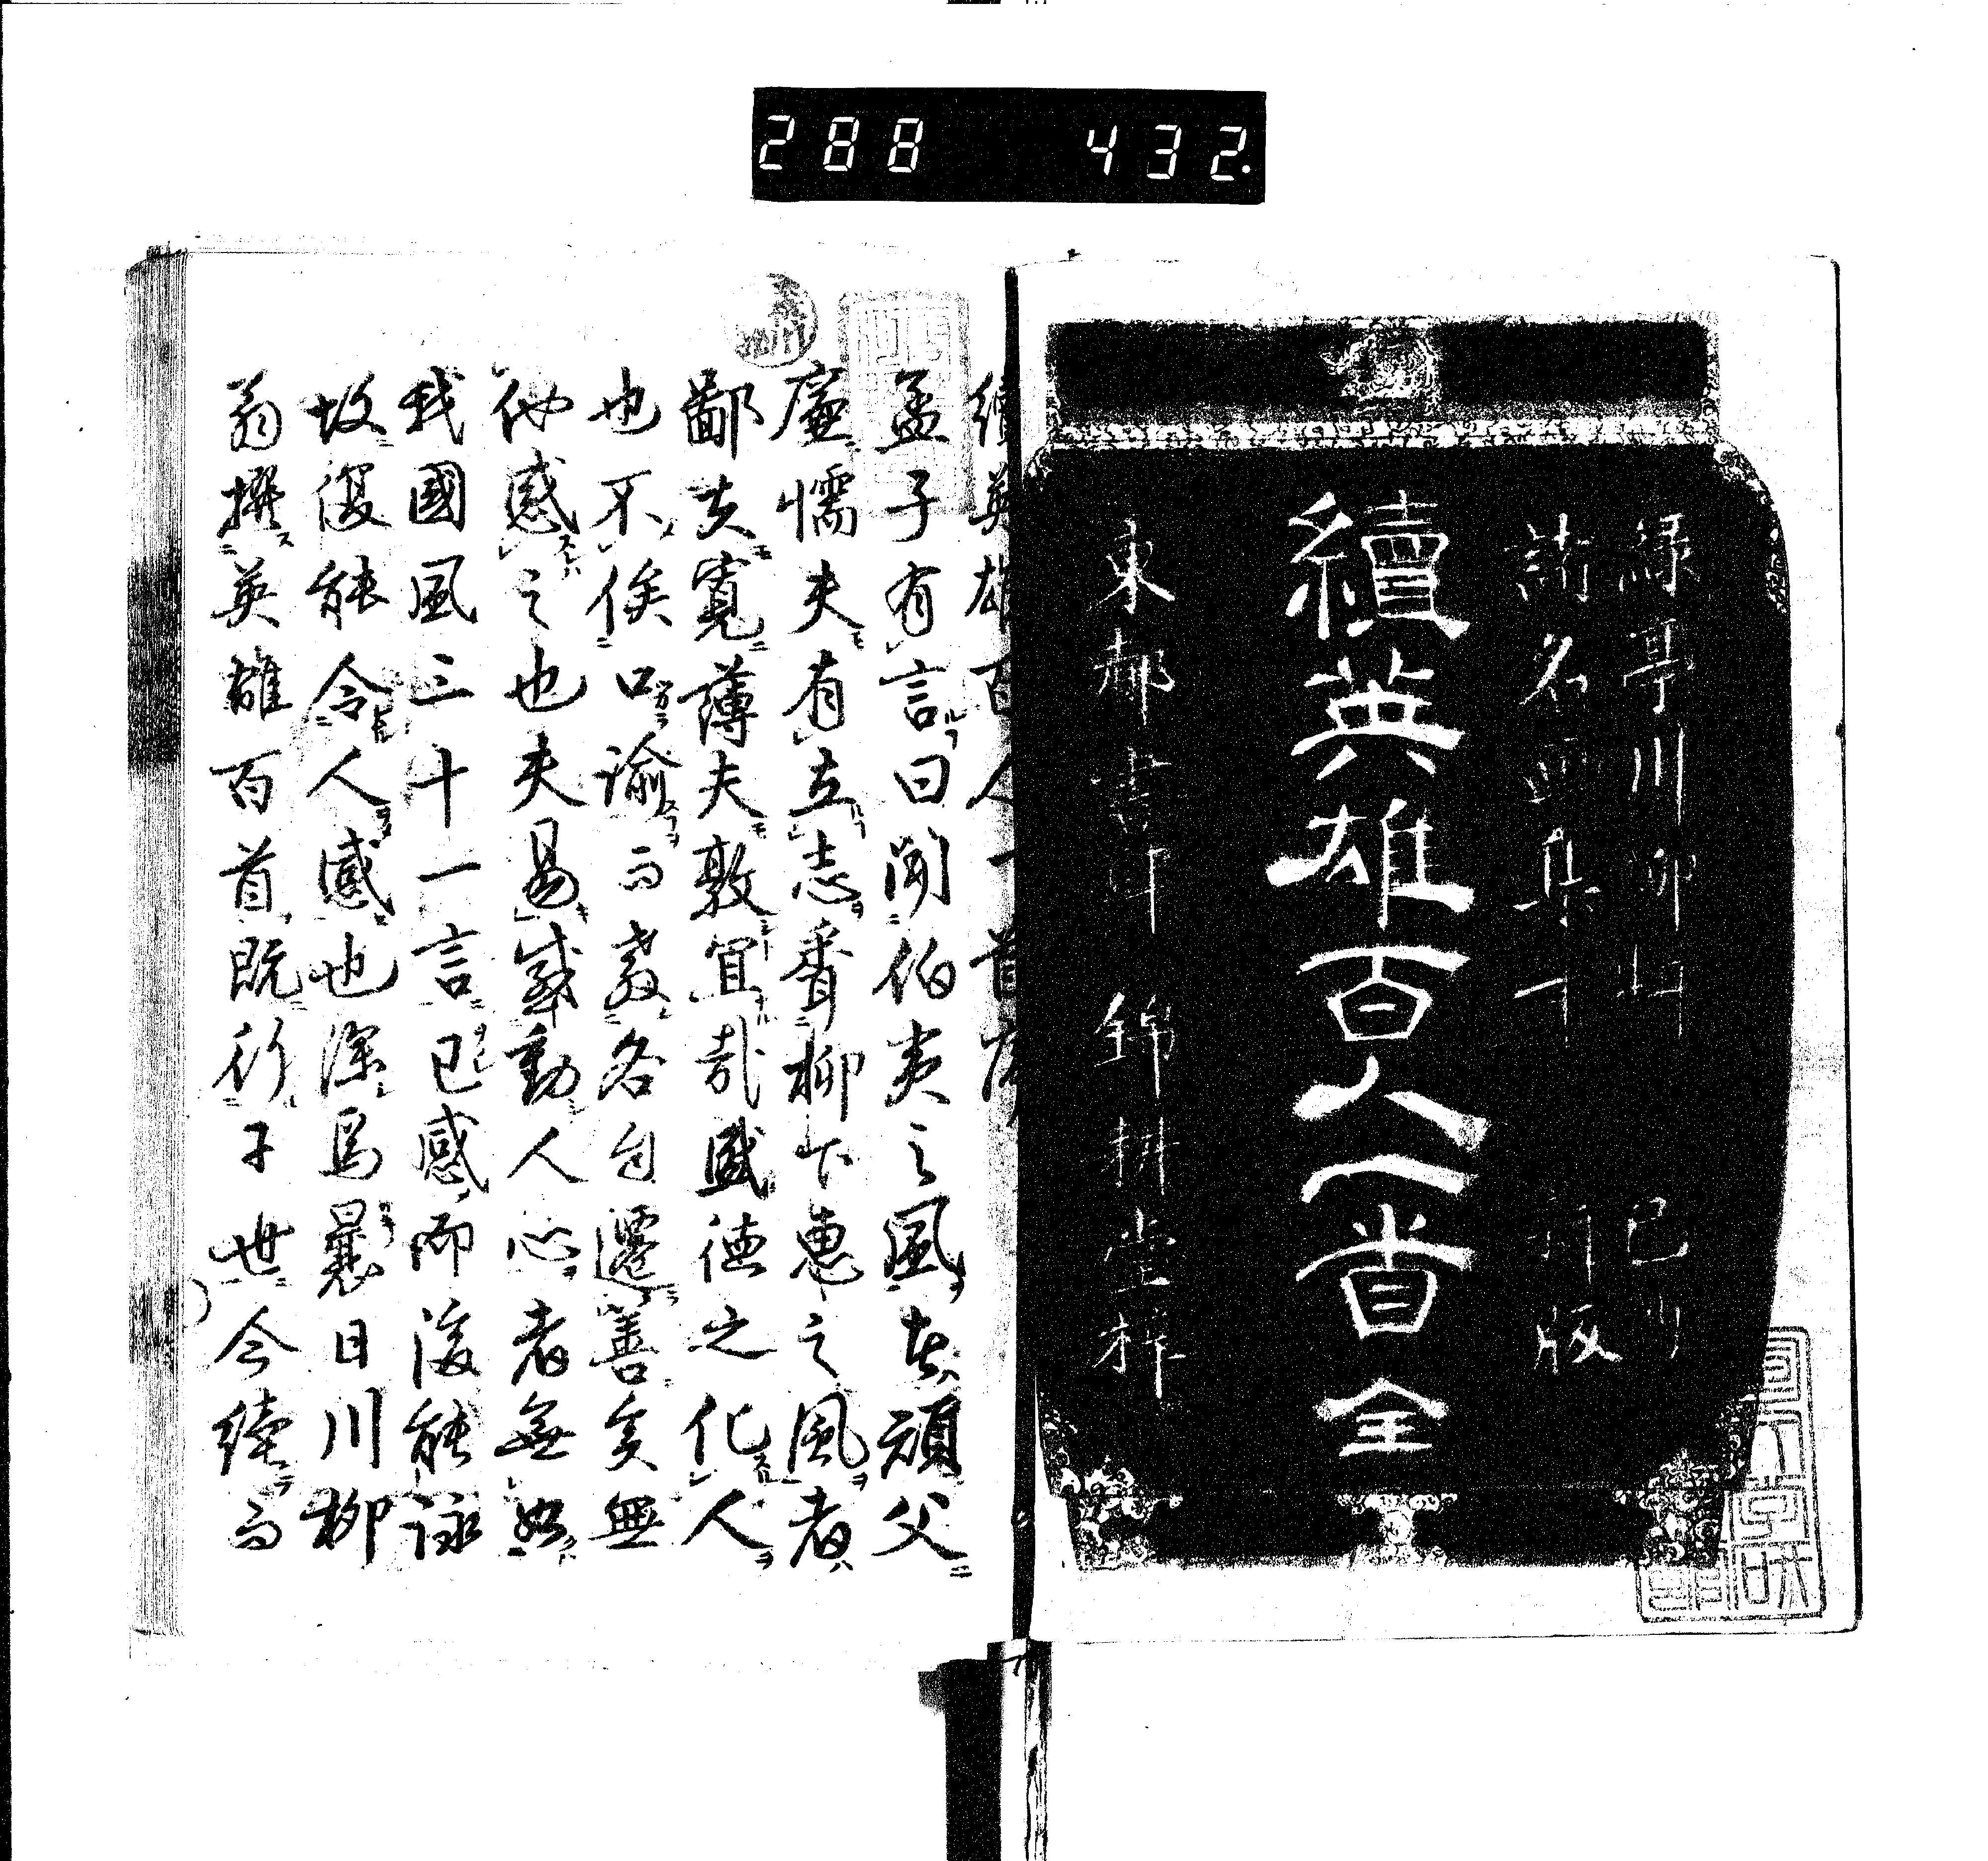 288 432.
緑亭川柳
諸名画集
版
續英雄百人一首 全
東都書肆 錦耕堂梓
續英雄百人一首序
孟子有言曰聞伯夷之風者頑父
廉懦夫有立志聞柳下惠之風者
鄙夫寬薄夫敦宜哉盛德之化人
也不俟口諭而教各自遷善矣無
他感之也夫易感動人心者無如
我國風三十一言已感而後能詠
故復能令人感也深焉曩日川柳
翁撰英雄百首既行于世今續而